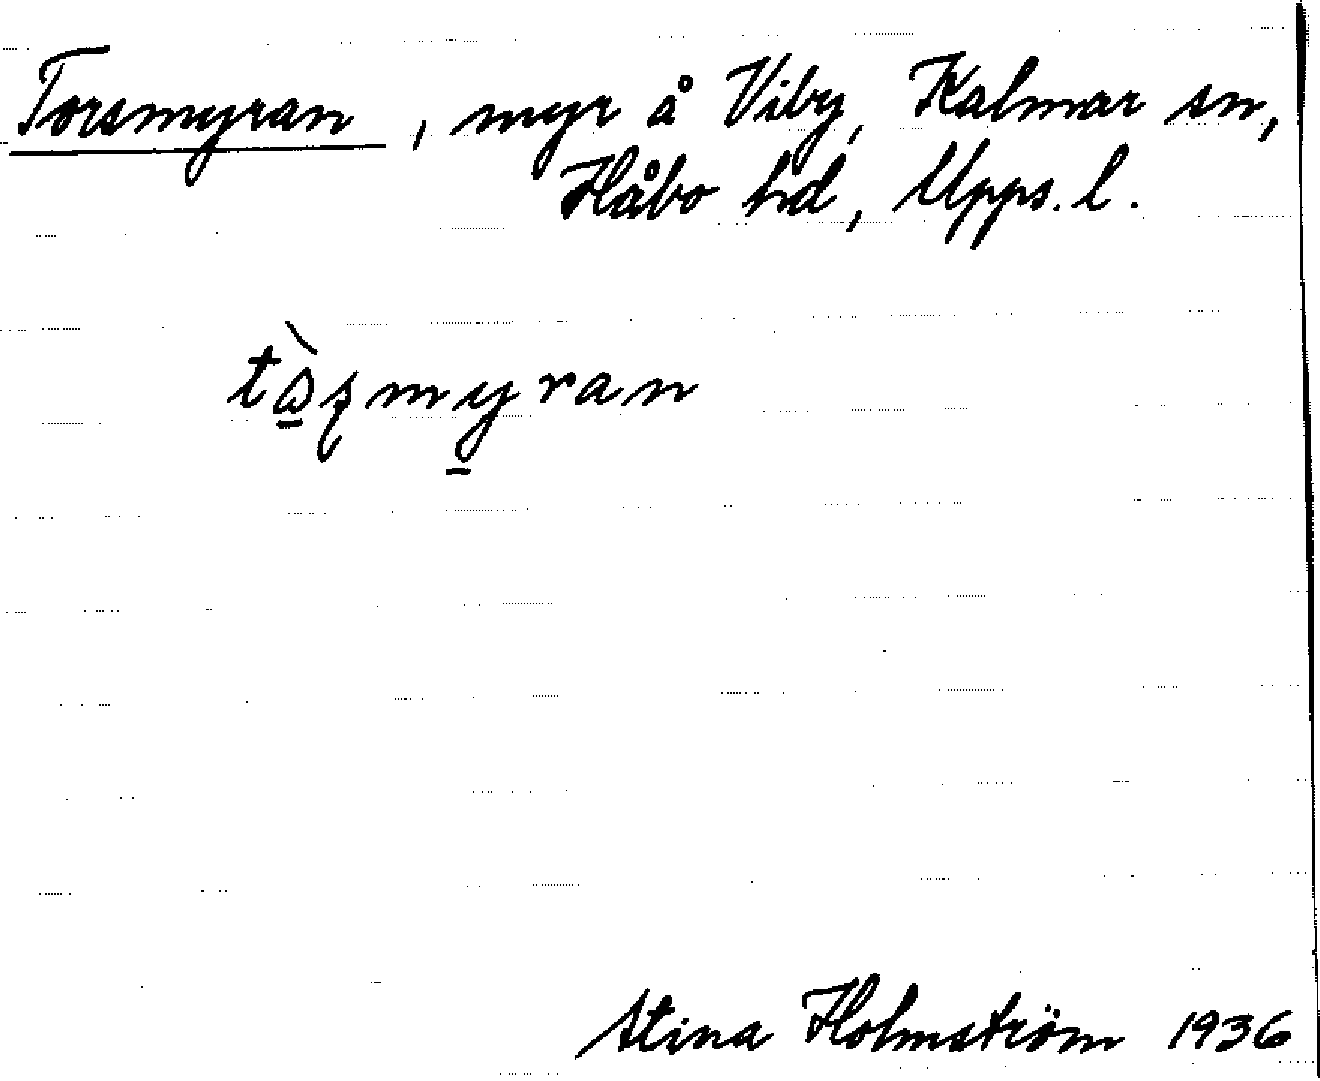 Torsmyran, myr å Viby, Kalmar sn,
Håbo hd, Upps. l.
tò̱ʂmy̱ran
Stina Holmström 1936